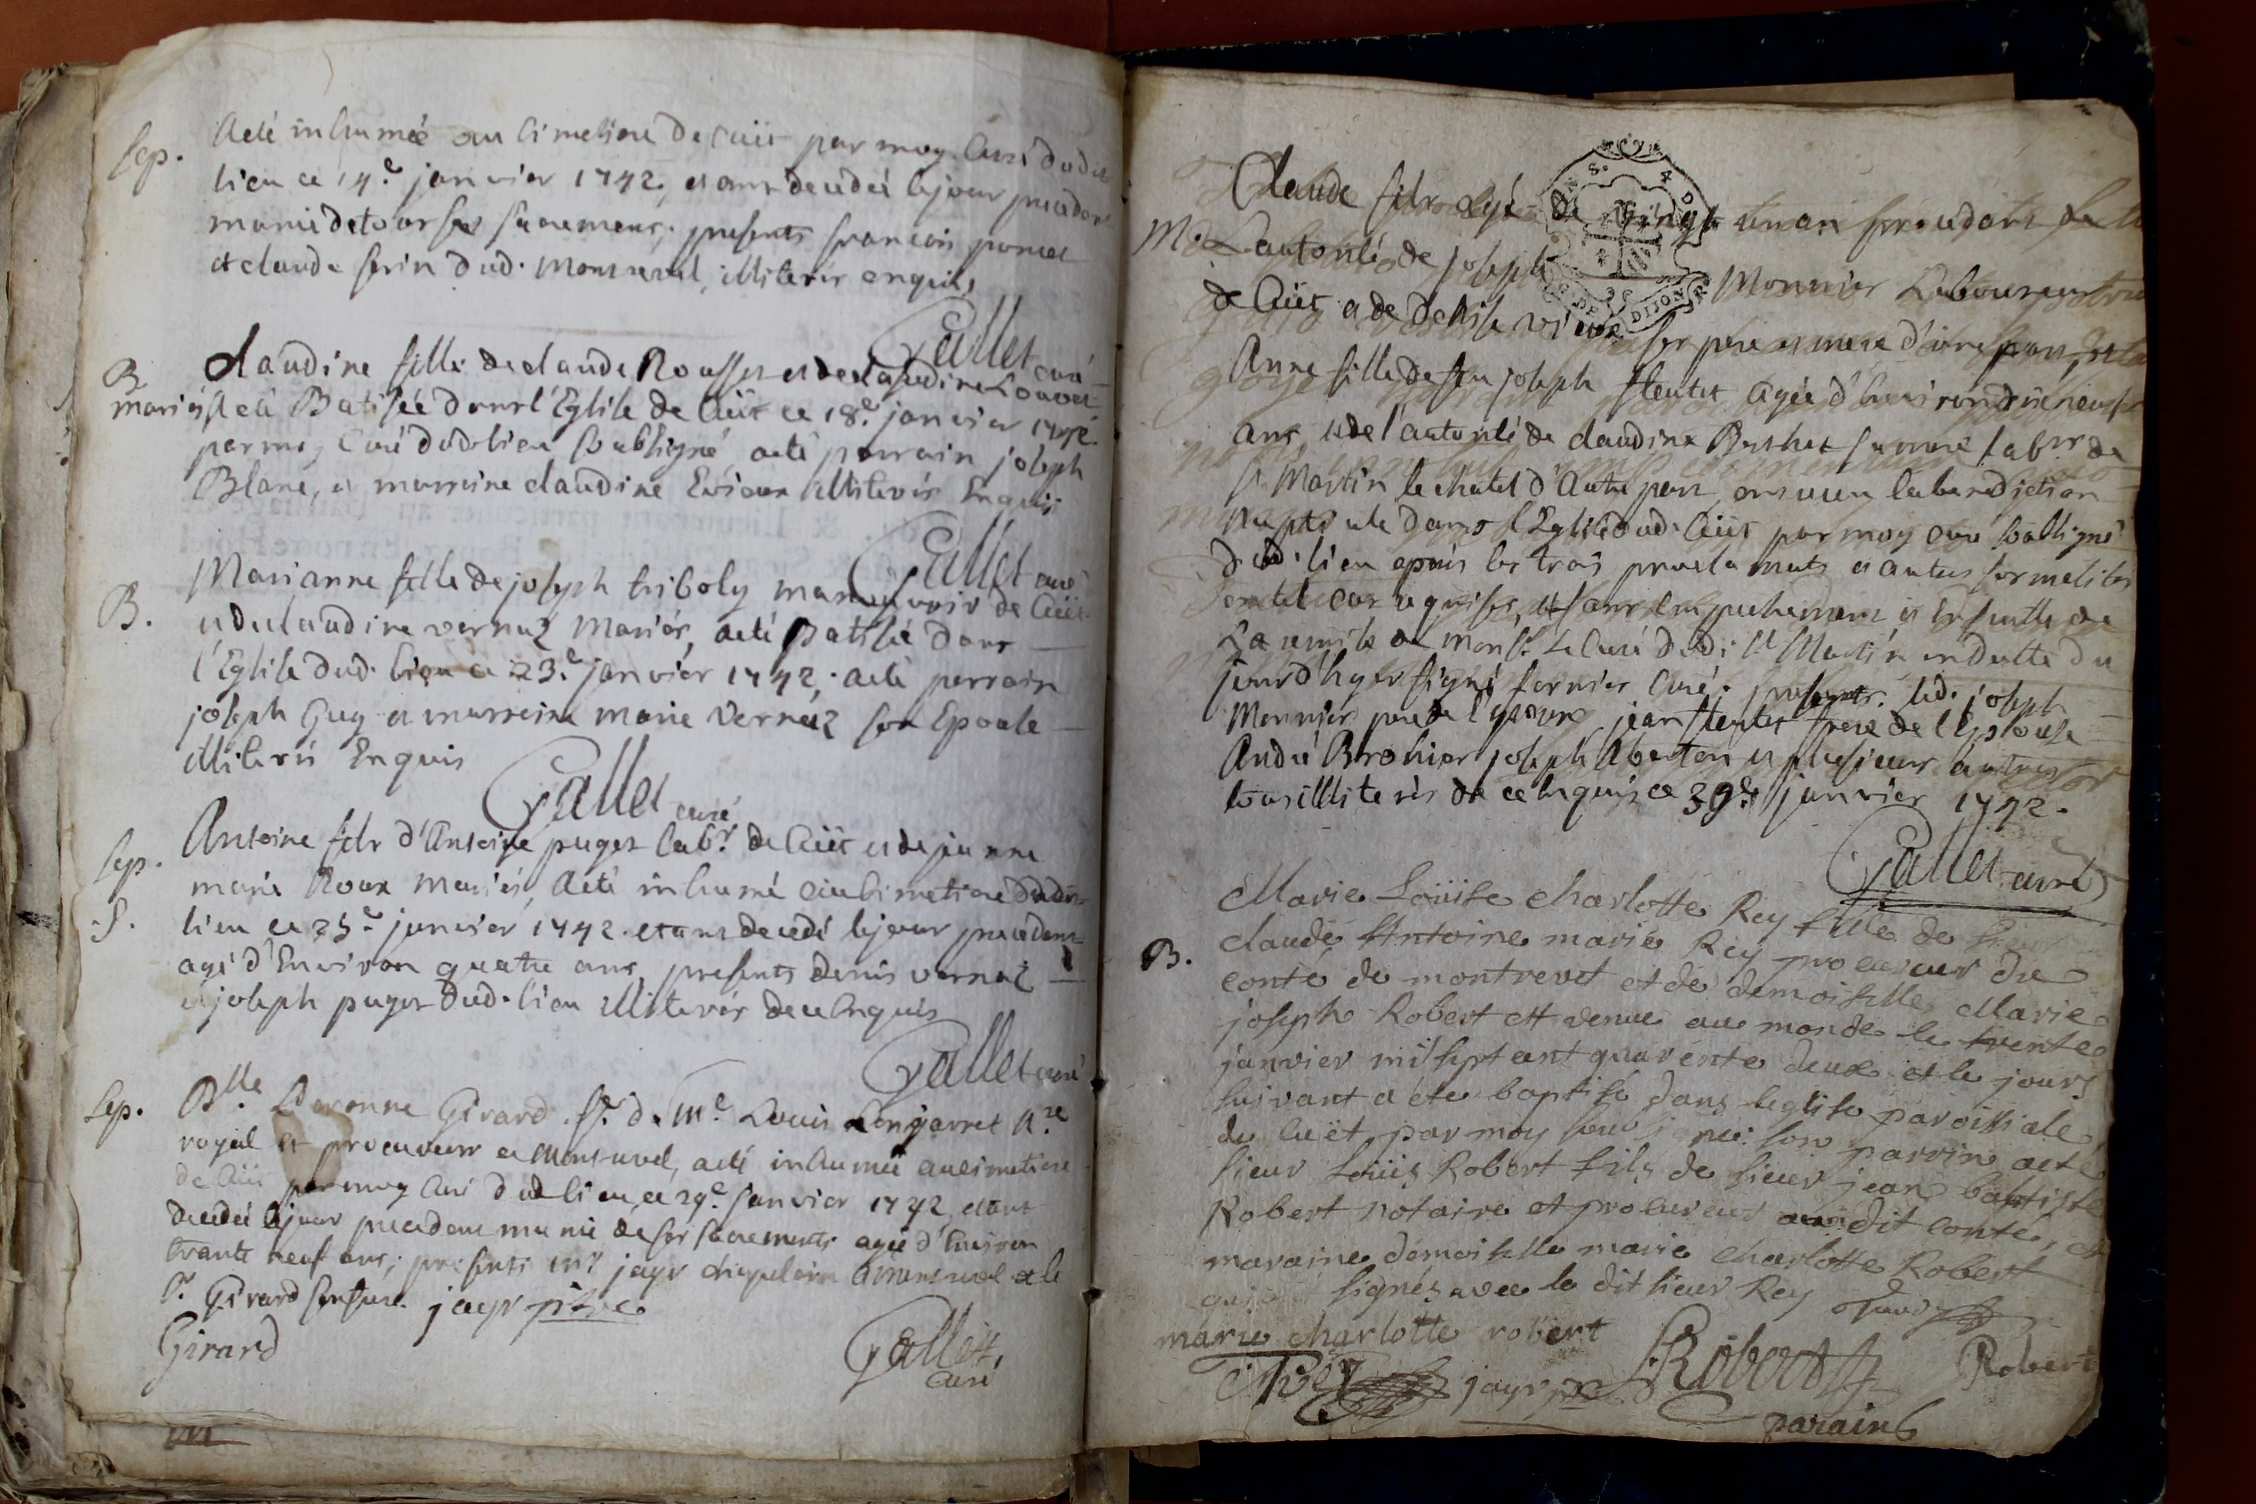 Sep.
a eté inhumée au Cimetiere de Cuët par moy Curé dudit
lieu ce 14e janvier 1742, etant decedeé le jour precedent
munie de tous ses sacremens; presents francois poncet
et claude ferin dud. Montrevel, illiterés enquis
Gallet curé
B.
mariés
claudine fille de claude Rousset et de claudine Louvet
a eté Batisée dans l'Eglise de Cuët ce 18e janvier 1742
par moy Curé dud. lieu soussigné a eté parrain joseph
Blanc, et marraine claudine illiterés Enquis
Gallet curé
B.
Marianne fille de joseph triboly maneuvrir de Cuët
et de claudine vernaz Mariés, a eté Batisée dans
l'Eglise dud. lieu ce 23e janvier 1742; a eté parrain
joseph Guy et marraine marie Vernaz son Epouse
illiterés Enquis
Gallet curé
Sep.
S.
Antoine fils d'Antoine puget labr. de Cuët et de jeanne
marie Roux Mariés, a eté inhumé au Cimetiere dudit
lieu ce 25e janvier 1742 etant decedé le jour precedent
agé d'Environ quatre ans, presents denis vernaz
et joseph puget dud. lieu illiterés de ce Enquis
Gallet curé
Sep.
Dlle Girard fe. de Me Louis Nre
royal et procureur a Montrevel, a eté inhumée au cimetiere
de Cuët par moy Curé dud lieu, ce 29e janvier 1742, etant
decedeé le jour precedent munie de ses sacrements ageé d'Environ
trante neuf ans; presents mr jayr chapelain a montrevel et le
Sr Girard son frere. jayr ptre
Girard
Gallet,
curé
M.
Claude fils agé de vingt un an procedant de
l'autorité de joseph Monnier Laboureur
de Cuët et de denise vieux ses pere et mere d'une part, et
Anne fille de feu joseph tentet agée d'Environ dixneuf
ans, et de l'autorité de claudine Buthet sa mere labse de
st Martin le chatel d'autre part ont receu la benediction
nuptiale dans l'Eglise dud. Cuët par moy curé soussigné
dud. lieu apres les trois proclamats et autres formalités
en tel cas requises, et sans empechement et Ensuitte de
La remise de Monsr. le Curé dudi. st Martin en datte du
jour d'hyer signé fornier Curé. presents. led. joseph
Monnier pere de l'epoux jean tentet frere de l'Epouse
André Brohier joseph et plusieurs autres
tous illiterés de ce Enquis ce janvier 1742.
Gallet curé
B.
Marie Loüise charlotte Rey fille de sieur
claude Antoine marie Rey procureur du
conté de montrevel et de demoiselle Marie
joseph Robert est venue au monde le trente
janvier mil sept cent quarente deux et le jours
suivant a éte baptisé dans leglise paroissiale
du Cuët par moy sous signé: son parrin a eté
sieur Loüis Robert fils de sieur jean baptiste
Robert notaire et procureur audit conté, et
maraine demoiselle marie charlotte Robert
qui signés avec le dit sieur Rey
marie charlotte robert
Rey jayr ptre Robert Robert
parain